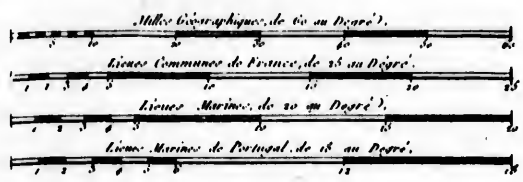 Milles Géographiques, de 60 au Degré.
5 10 20 30 40 50 60
Lieues Communes de France, de 25 au Degré.
1 2 3 4 5 10 15 20 25
Lieues Marines, de 20 au Degré.
1 2 3 4 5 10 15 20
Lieues Marines de Portugal, de 18 au Degré.
1 2 3 4 5 6 12 18